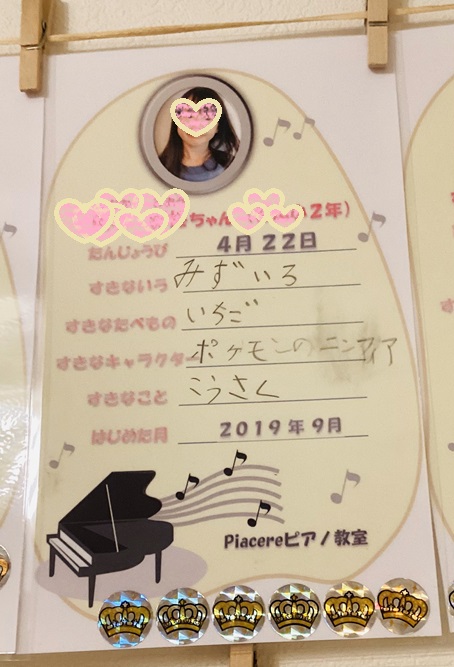 ちゃん 2年)
たんじょうび 4月22日
すきないろ みずいろ
すきなたべもの いちご
すきなキャラクター ポケモンのニンフィア
すきなこと こうさく
はじめた月 2019年9月
Piacereピアノ教室